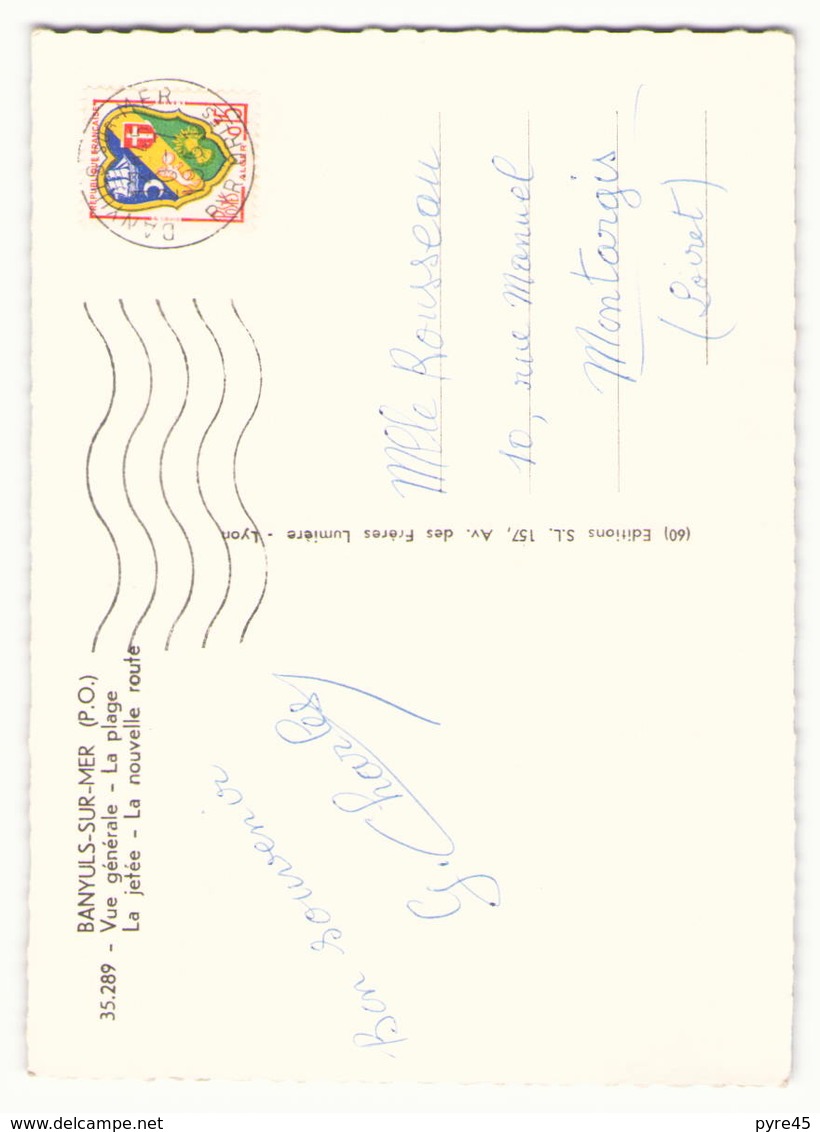 BANYULS-SUR-MER (P.O.)
35.289 - Vue générale - La plage
La jetée - La nouvelle route
Bon souvenir
Charles
(60) Editions S.L. 157, Av. des Frères Lumière - Lyon
REPUBLIQUE FRANÇAISE
ALGER
Mlle Rousseau
10, rue Manuel
Montargis
(Loiret)
delcampe.net
pyre45